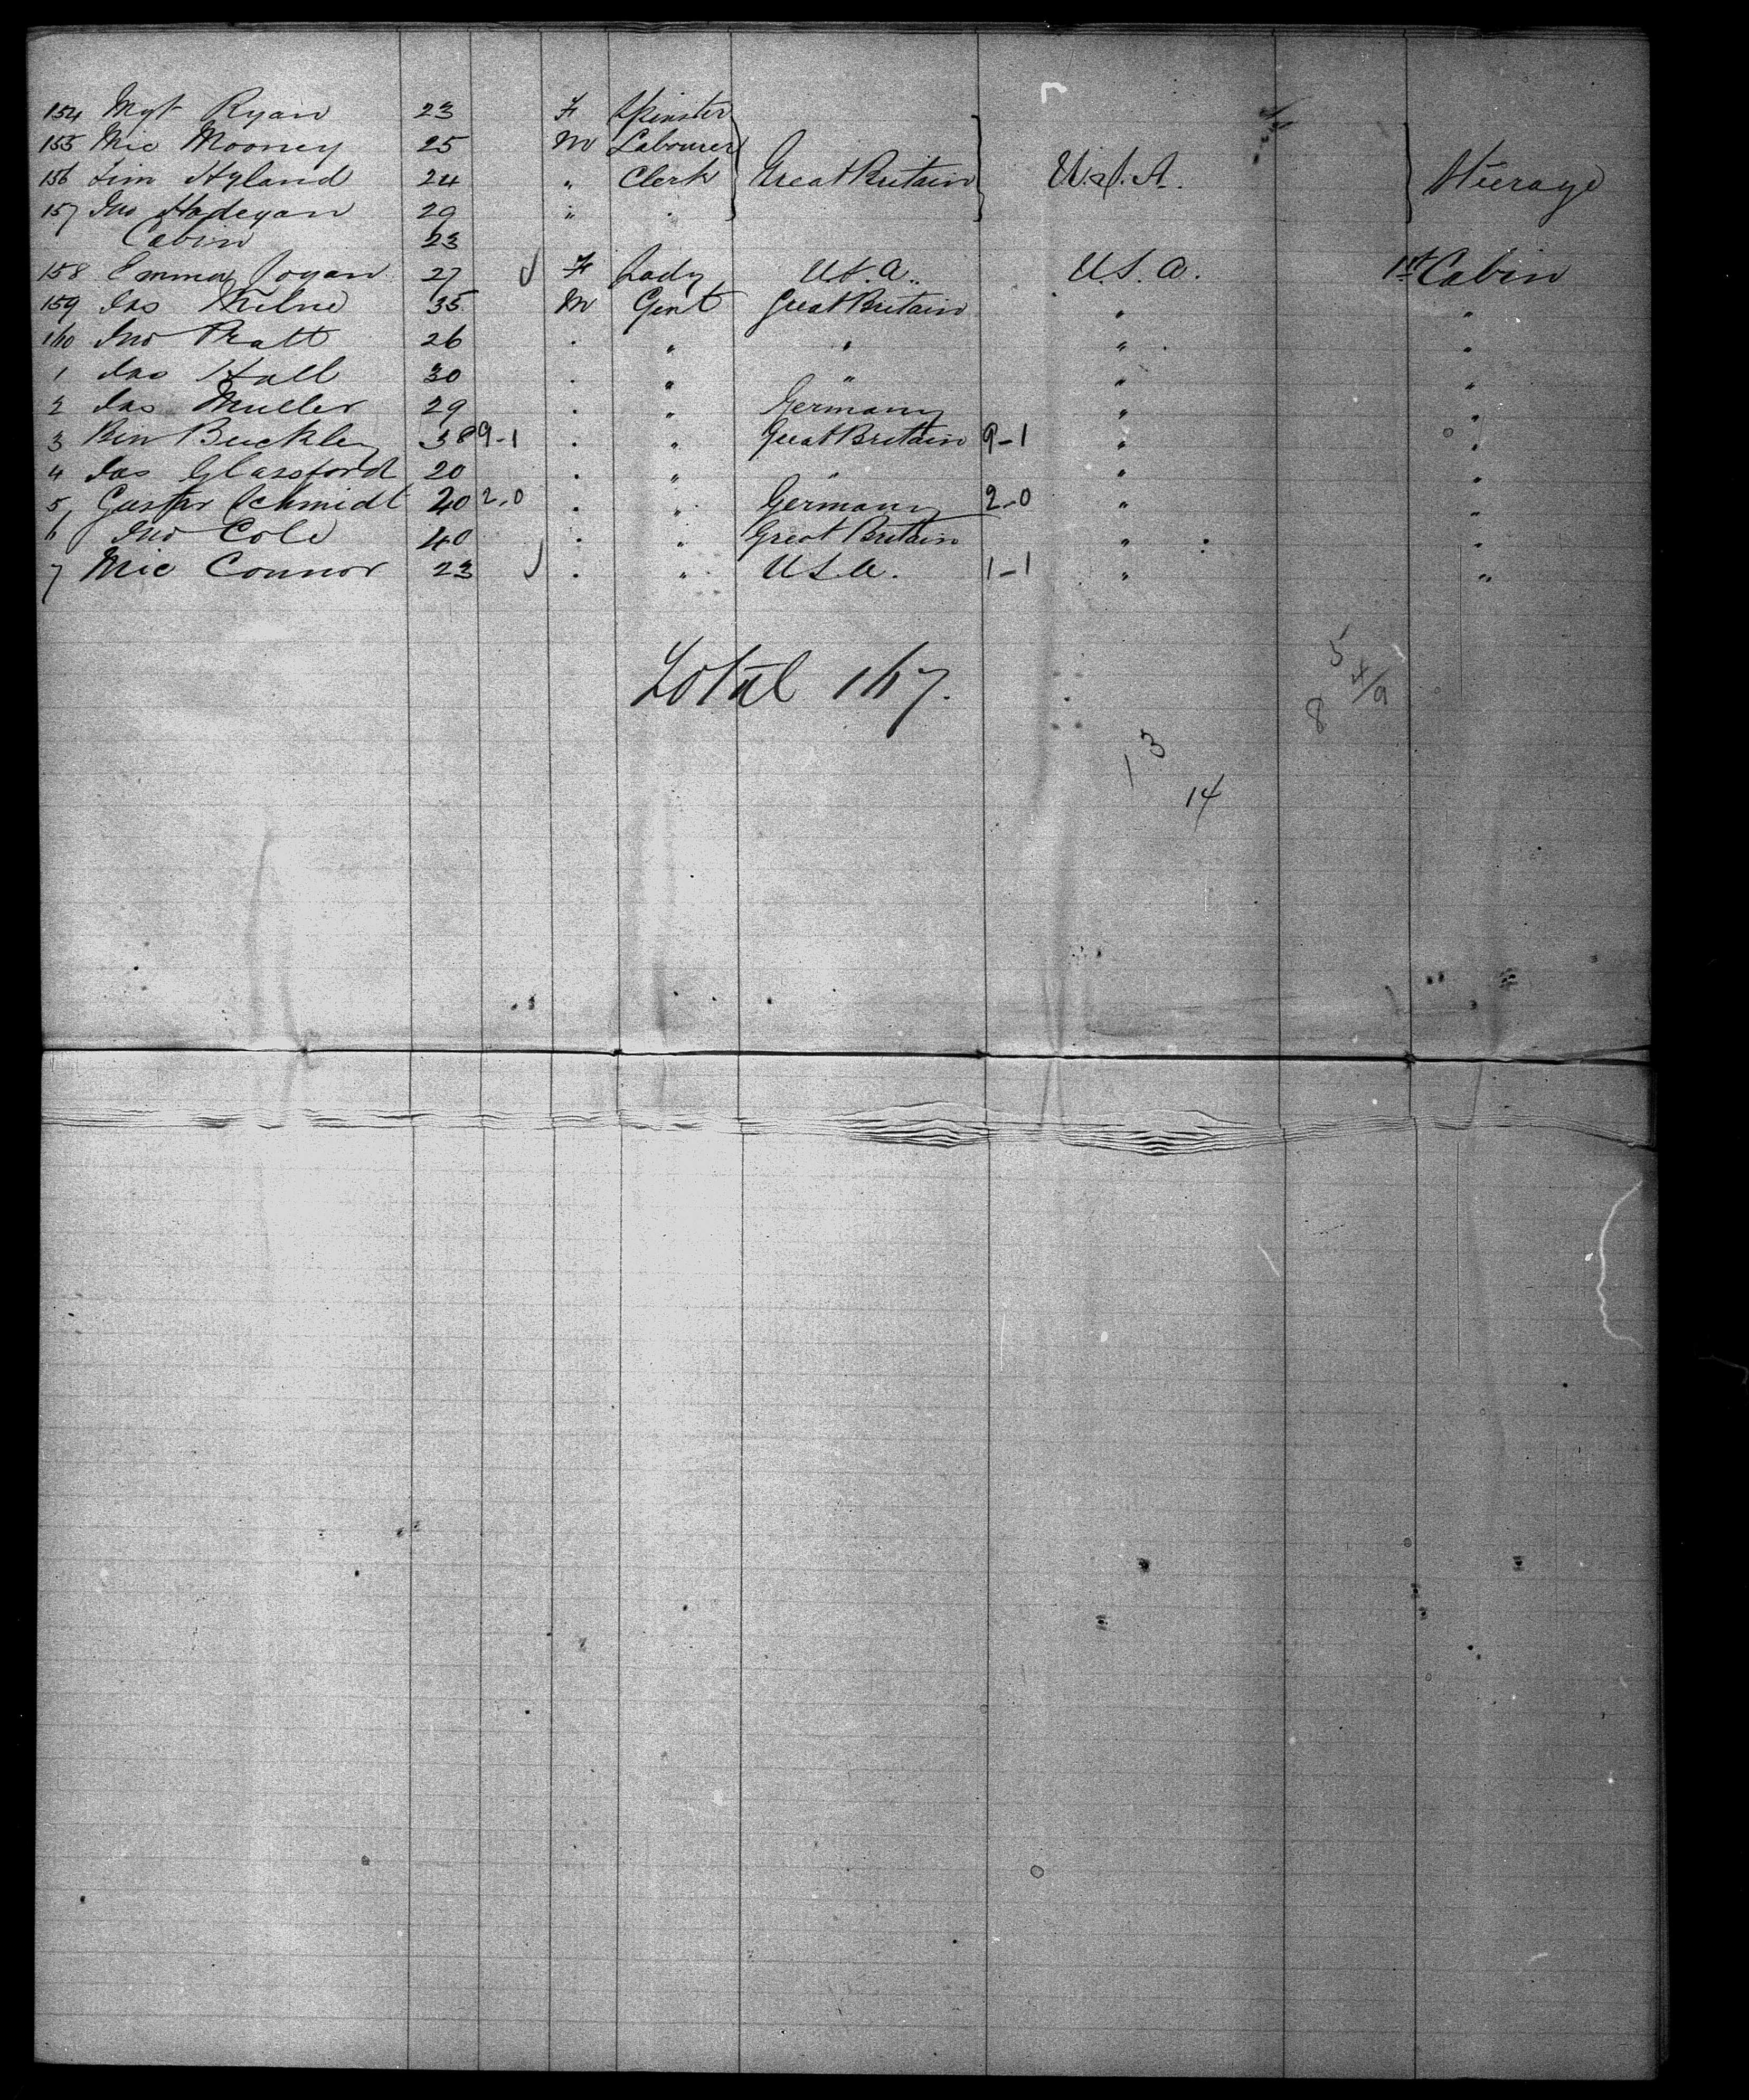 154 Mgt Ryan 23 F Spinster
155 Mic Mooney 25 M Labourer
156 Tim Hyland 24 " Clerk Great Britain U.S.A. Steerage
157 Jno Hadegan 29 " "
Cabin 23
158 Emma Logan 27 F Lady U.S.A. U.S.A. 1st Cabin
159 Jas Milne 35 M Gent Great Britain " "
160 Jno Pratt 26 " " " " "
1 Jas Hall 30 " " " " "
2 Jas Muller 29 " " Germany " "
3 Ben Buckley 38 9-1 " " Great Britain 9-1 " "
4 Jas Glassford 20 " " " " "
5 Gustav Schmidt 40 2-0 " " Germany 2-0 " "
6 Jno Cole 40 " " Great Britain " "
7 Mic Connor 23 " " U.S.A. 1-1 " "
Total 167.
5
4/9
8
13
14